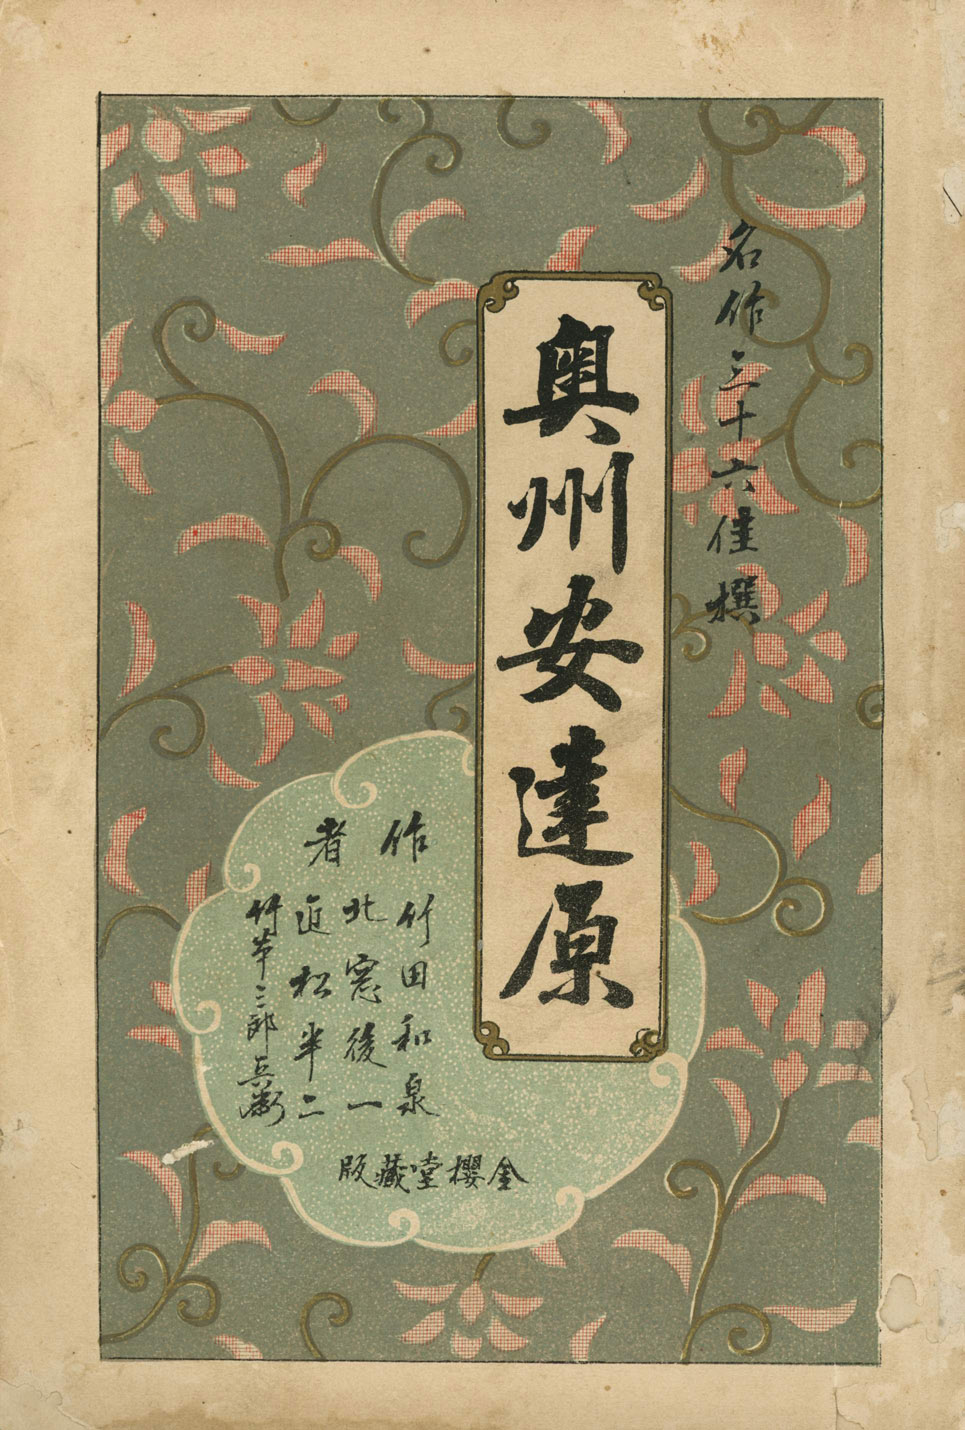 名作三十六佳撰
奥州安達原
作者
竹田和泉
北窓後一
近松半二
竹本三郎兵衛
金櫻堂藏版